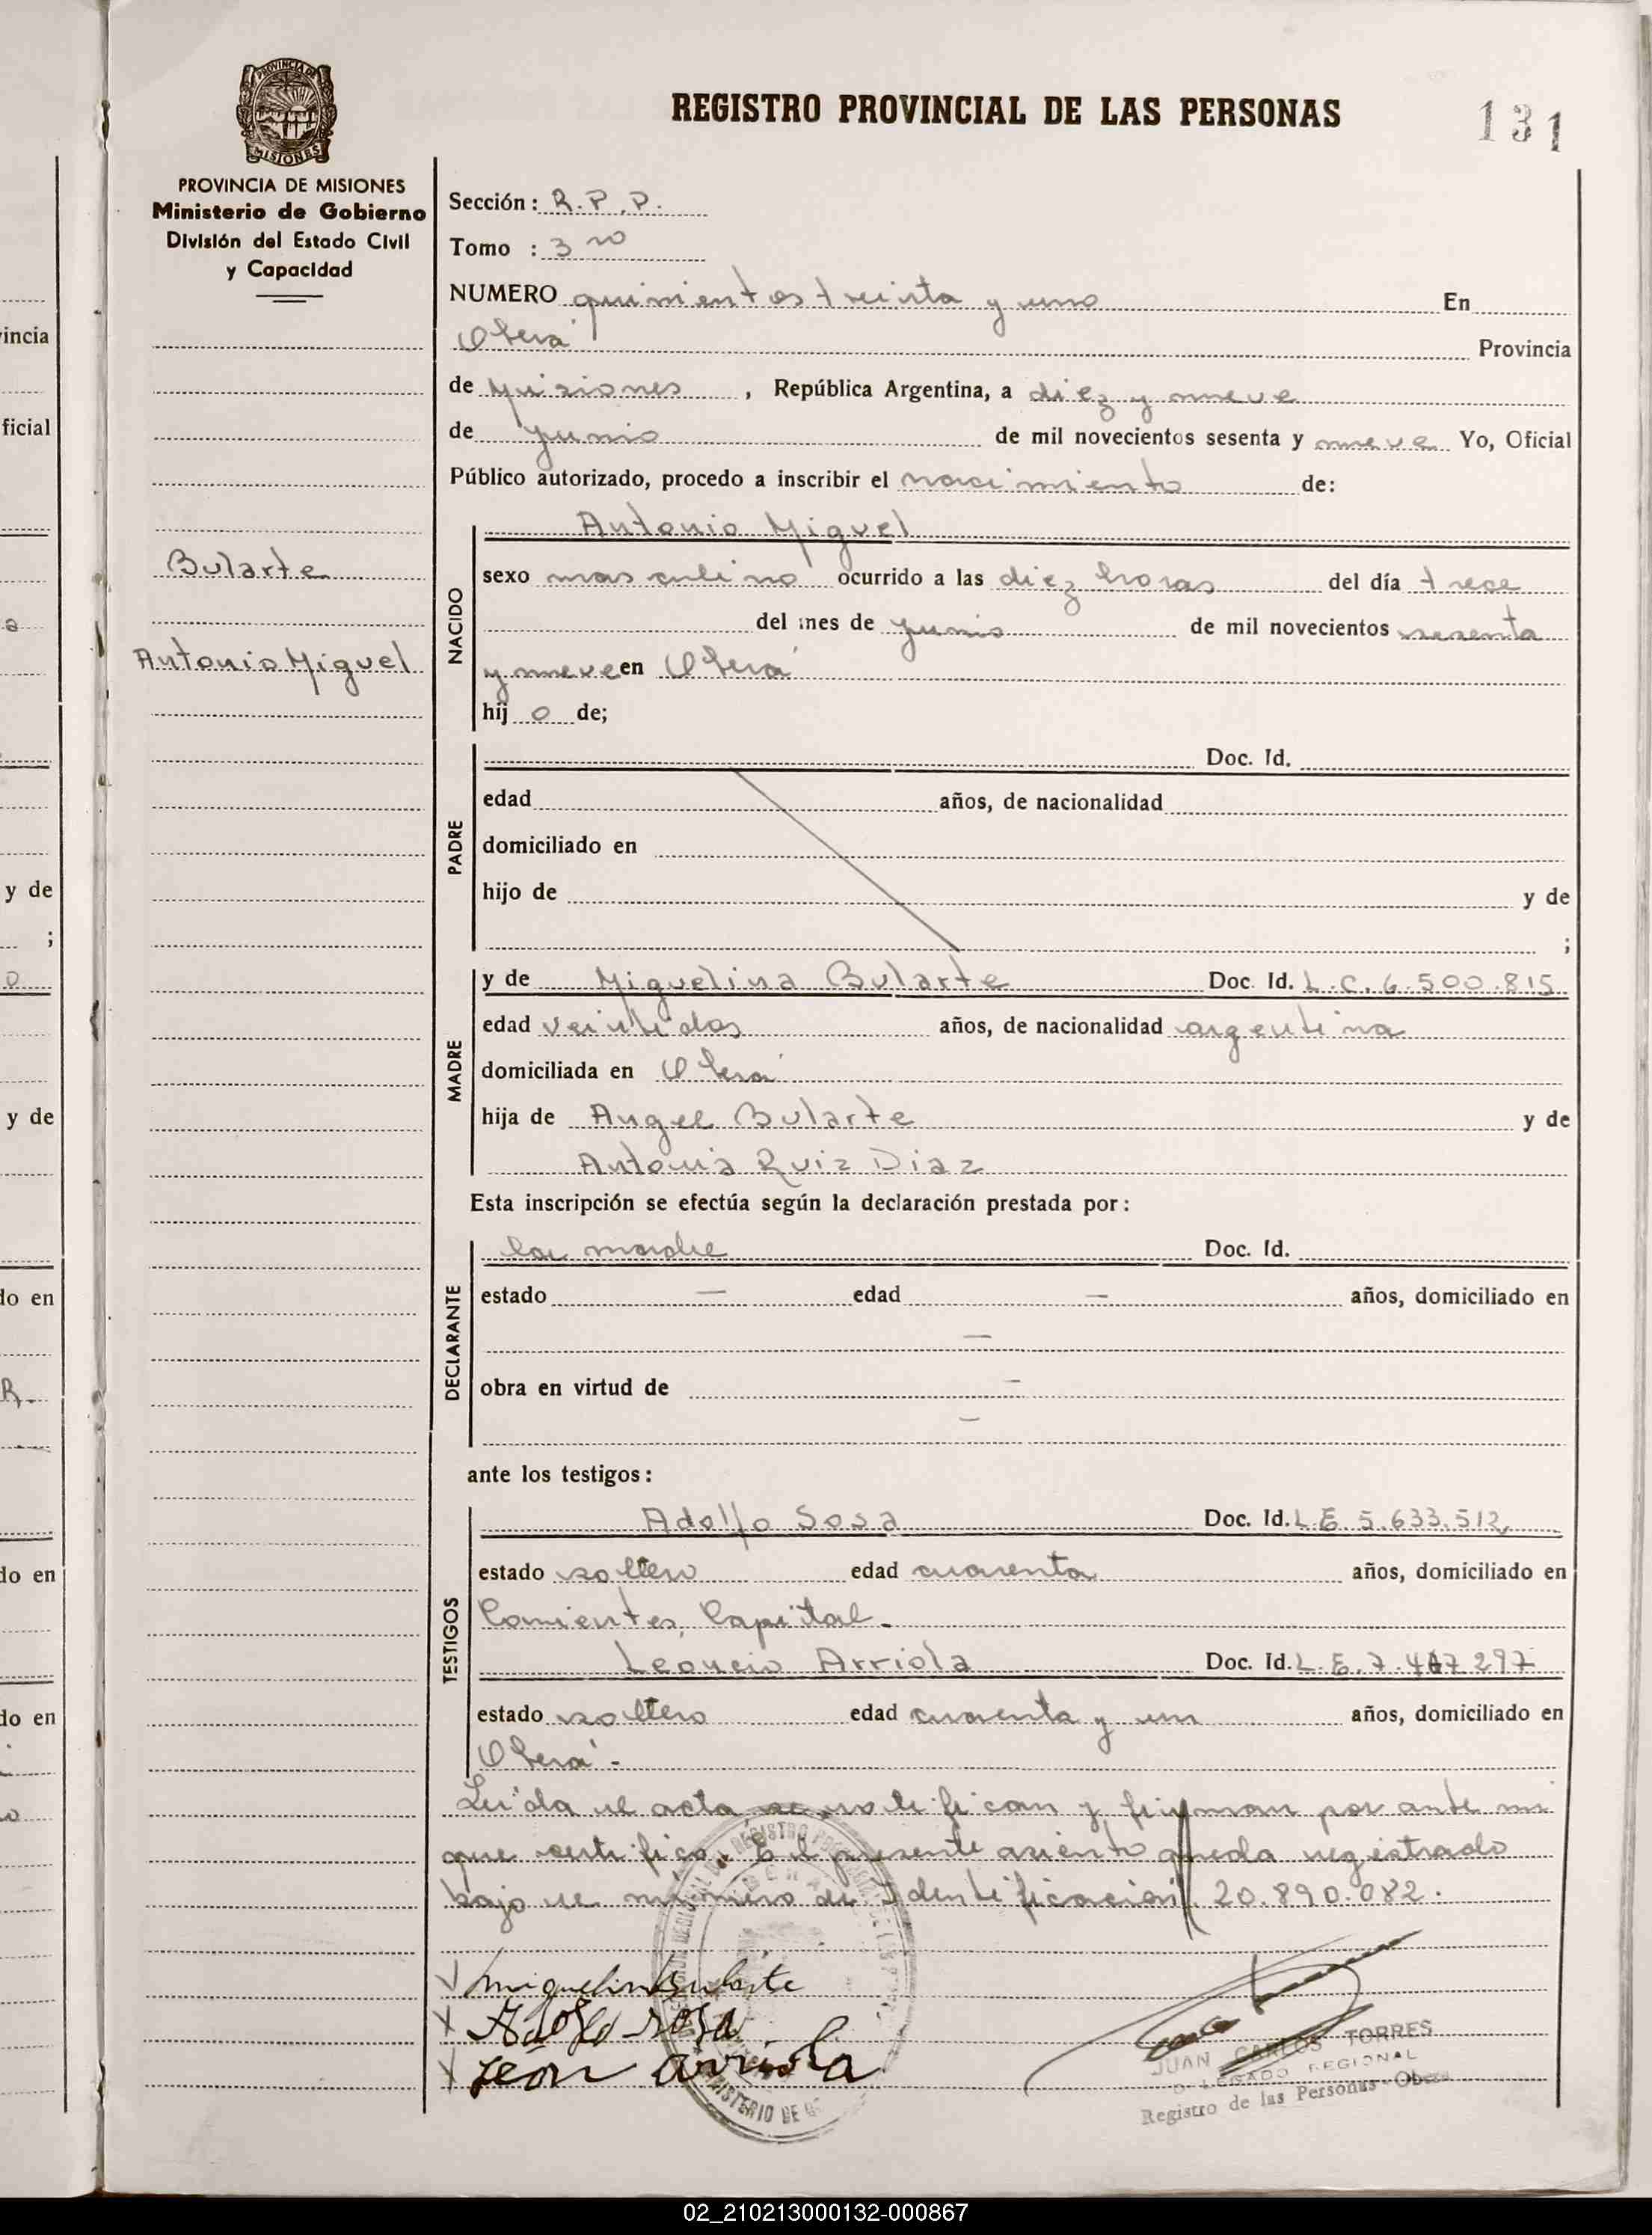 PROVINCIA DE
MISIONES
REGISTRO PROVINCIAL DE LAS PERSONAS
131
PROVINCIA DE MISIONES
Ministerio de Gobierno
División del Estado Civil
y Capacidad
Sección: R.P.P.
Tomo : 3ro
NUMERO quinientos treinta y uno En
Oberá Provincia
de Misiones , República Argentina, a diez y nueve
de Junio de mil novecientos sesenta y nueve Yo, Oficial
Público autorizado, procedo a inscribir el nacimiento de:
Antonio Miguel
Bularte
Antonio Miguel
NACIDO
sexo masculino ocurrido a las diez horas del día trece
del mes de Junio de mil novecientos sesenta
y nueve en Oberá
hij o de;
PADRE
Doc. Id.
edad años, de nacionalidad
domiciliado en
hijo de y de
;
MADRE
y de Miguelina Bularte Doc. Id. L.C. 6.500.815
edad veintidos años, de nacionalidad argentina
domiciliada en Oberá
hija de Angel Bularte y de
Antonia Ruiz Diaz
Esta inscripción se efectúa según la declaración prestada por:
DECLARANTE
la madre Doc. Id.
estado — edad — años, domiciliado en
—
obra en virtud de —
—
ante los testigos:
TESTIGOS
Adolfo Sosa Doc. Id. L.E. 5.633.512
estado soltero edad cuarenta años, domiciliado en
Corrientes, Capital.-
Leoncio Arriola Doc. Id. L.E. 7.467.297
estado soltero edad cuarenta y un años, domiciliado en
Oberá.-
Leída el acta se notifican y firman por ante mi
que certifico. El presente asiento queda registrado
bajo el numero de Identificacion 20.890.082.
Miguelina Bularte
Adolfo Sosa
León Arriola
JUAN CARLOS TORRES
DELEGADO REGIONAL
Registro de las Personas - Oberá
vincia
ficial
a
y de
;
o
y de
do en
R.
do en
do en
02_210213000132-000867